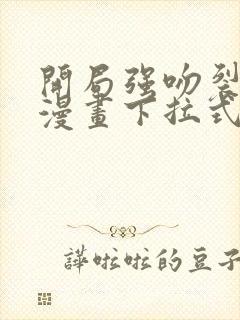 開局强吻裂
漫畫下拉式
譁啦啦的豆子